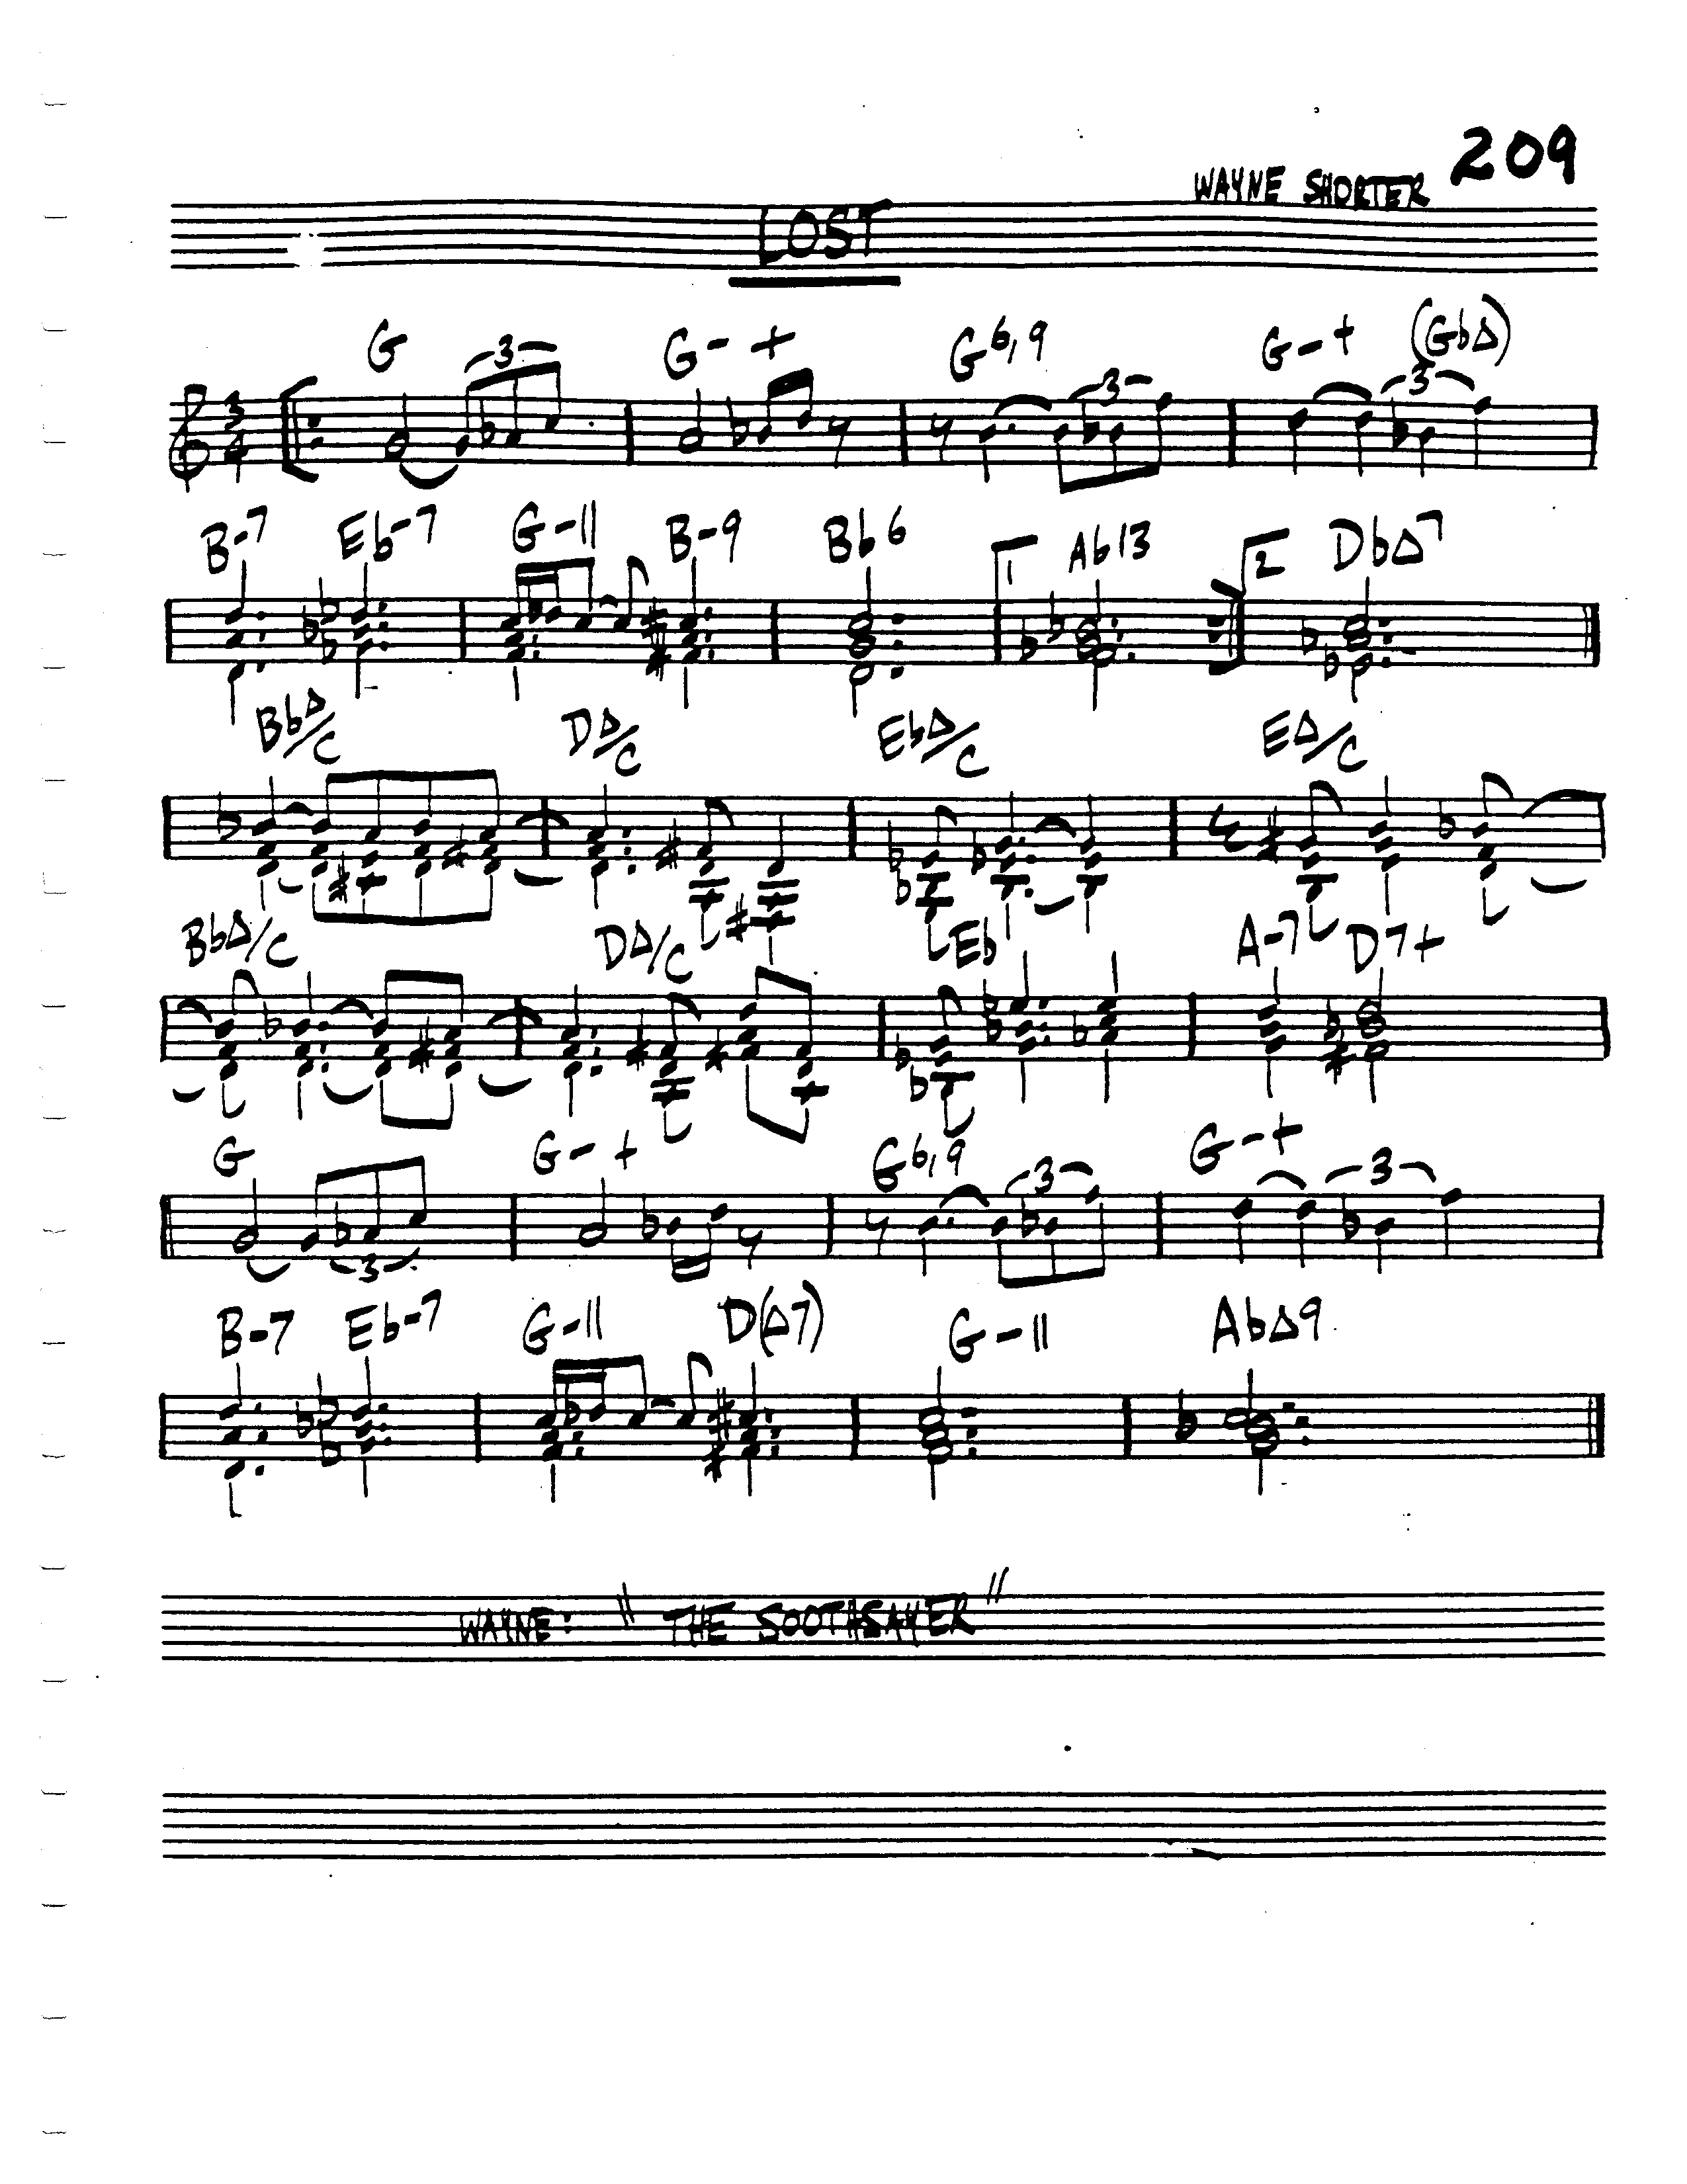 209
WAYNE SHORTER
LOST
G G- + G6,9 G-+ (GbΔ)
3 3 3
3
4
B-7 Eb-7 G-11 B-9 Bb6 1 Ab13 2 DbΔ7
BbΔ/C DΔ/C EbΔ/C EΔ/C
BbΔ/C DΔ/C Eb A-7 D7+
G G- + G6,9 G-+
3 3 3
B-7 Eb-7 G-11 D(Δ7) G-11 AbΔ9
WAYNE: "THE SOOTHSAYER"